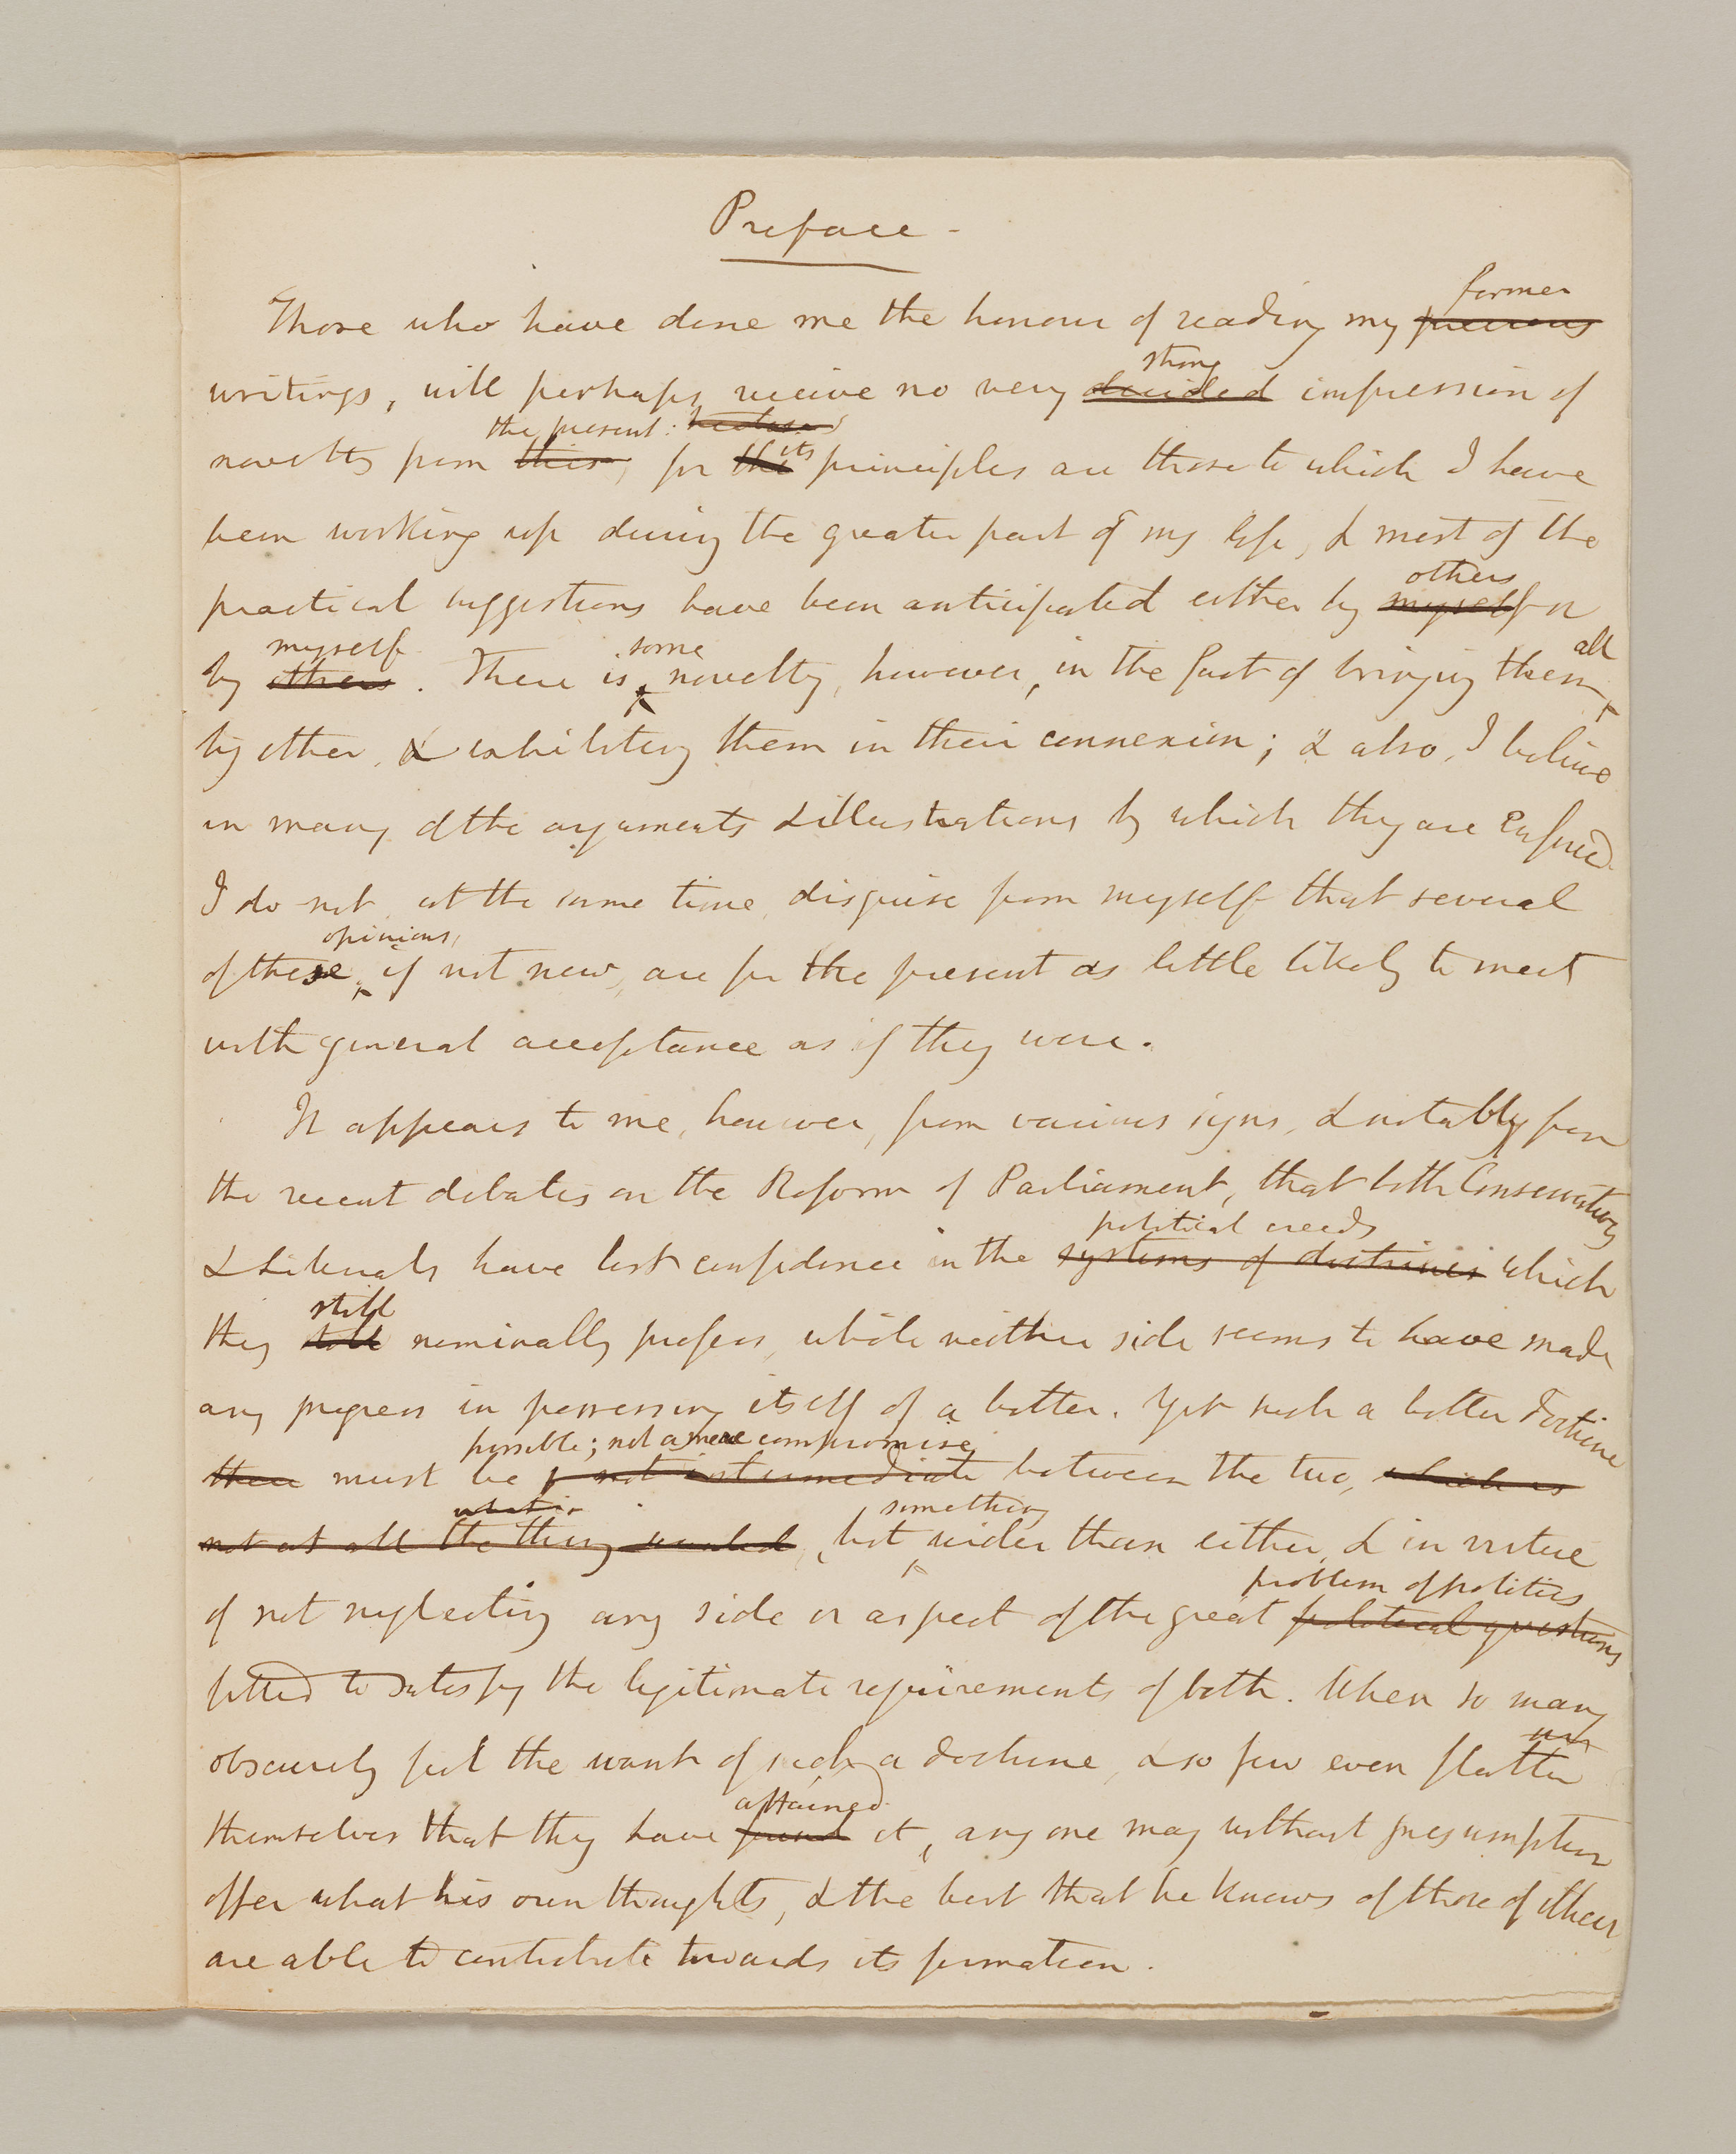 Preface -
former
Those who have done me the honour of reading my previous
strong
writings, will perhaps, receive no very decided impression of
the present:
novelty from this, for the its principles are those to which I have
been working up during the greater part of my life, & most of the
others
practical suggestions have been anticipated either by myself or
myself some all
by others. There is novelty, however, in the fact of bringing them
togother, & exhibiting them in their connexion; & also, I believe
in many of the arguments & illustrations by which they are enforced.
I do not, at the same time, disguise from myself that several
opinions,
of these, if not new, are for the present as little likely to meet
with general acceptance as if they were.
It appears to me, however, from various signs, & notably from
the recent debates on the Reform of Parliament, that both Conservatives
political creeds
& Liberals have lost confidence in the systems of doctrines which
still
they nominally profess, while neither side seems to have made
any progress in possessing itself of a better. Yet such a better doctrine
possible; not a mere compromise
there must be not intermediate between the two, which is
what is something
not at all the thing wanted, but wider than either, & in virtue
problem of politics
of not neglecting any side or aspect of the great political questions
fitted to satisfy the legitimate requirements of both. When so many
obscurely feel the want of such a doctrine, & so few even flatter
attained
themselves that they have found it, any one may without presumption
offer what his own thoughts, & the best that he knows of those of others
are able to contribute towards its formation.